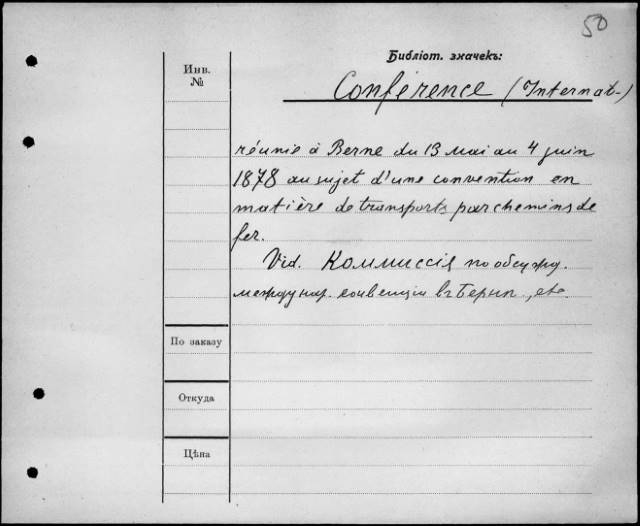 50
Библіот. значекъ:
Инв.
№
Conférence (Internat-)
réunie à Berne du 13 Mai au 4 juin
1878 au sujet d'une convention en
matière de transports par chemins de
fer.
Vid. Коммиссія по обсужд.
междунар. конвенціи въ Бернѣ, etc.
По заказу
Откуда
Цѣна